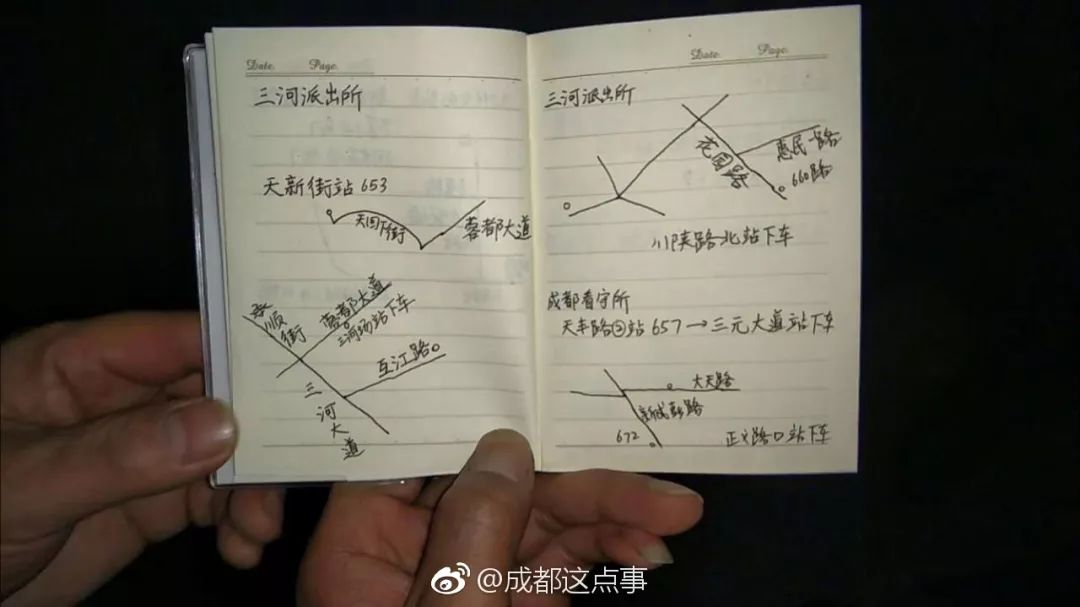 Date. Page.
三河派出所
天新街站 653
天回下街
蓉都大道
顺
街
蓉都大道
三河场站下车
互江路
三
河
大
道
Date. Page.
三河派出所
花园路
惠民路
660路
川陕路北站下车
成都看守所
天丰路②站 657→三元大道站下车
大天路
新成彭路
672
正义路口站下车
@成都这点事